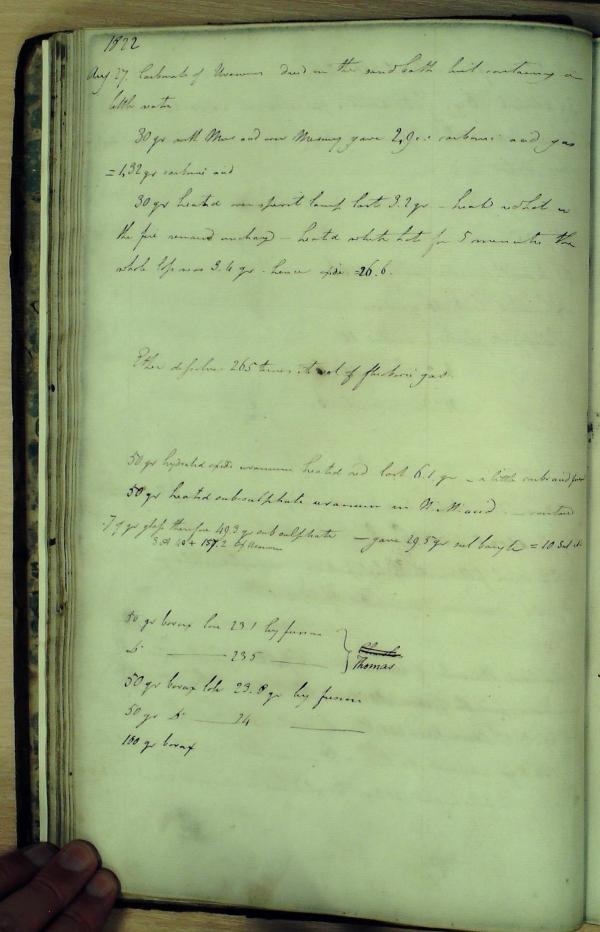 1822
Aug 27. Carbonate of Uranium dried on the sand bath but containing a
little water
30 gr with Mur acid over Mercury gave 2,9 c.i. carbonic acid gas
= 1,32 gr carbonic acid
30 gr heated over spirit lamp lost 3.2 gr - heated red hot in
the fire remained unchangd - heated white hot for 5 minutes the
whole loss was 3.4 gr - hence oxide = 26.6.
Ether dissolves 265 times its vol of fluoboric gas
50 gr hydrated oxide uranium heated red lost 6.1 gr - a little carb acid
50 gr heated subsulphate uranium in N. M. acid
.7 of gr glass therefore 49.3 gr sub sulphate - gave 29.5 gr sul baryta = 10 Sul
40 + 157.2 of Uranium
50 gr borax lose 23.1 by fusion
Do 23.5
Thomas
50 gr borax lose 23.8 gr by fusion
50 gr Do 24
100 gr borax